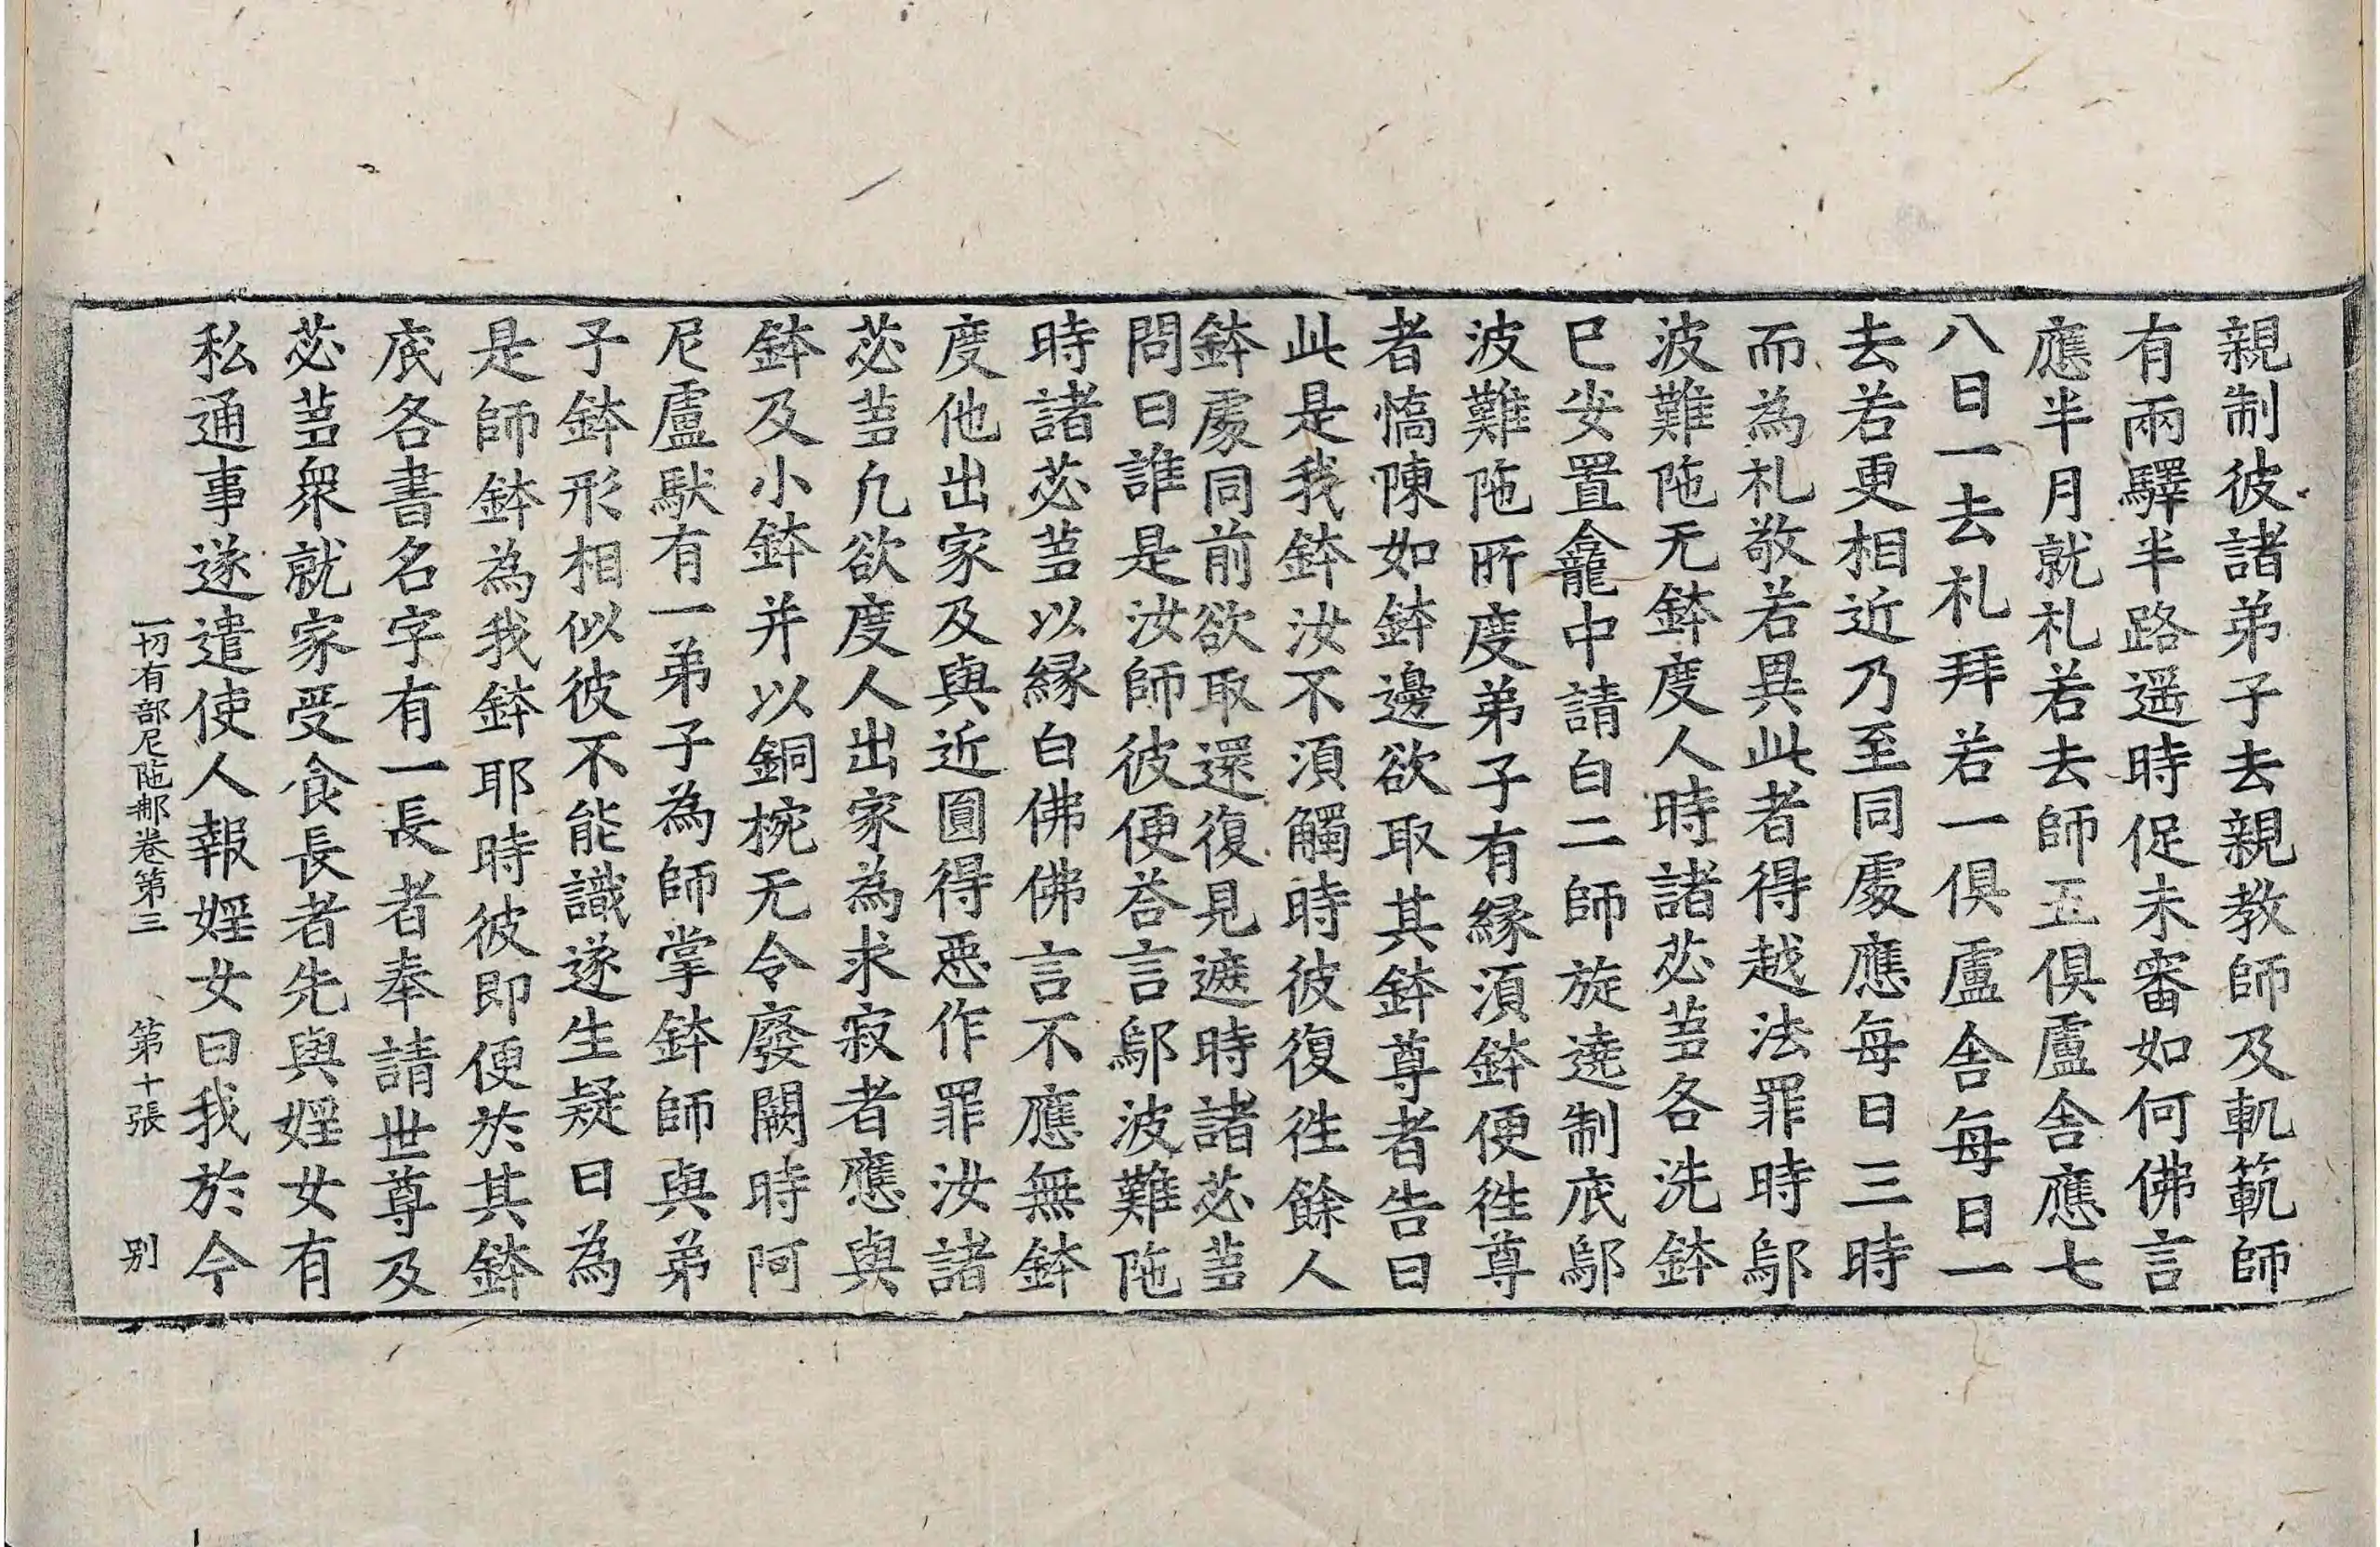 親制彼諸弟子去親教師及軌範師
有兩驛半路遥時促未審如何佛言
應半月就礼若去師五俱盧舍應七
八日一去礼拜若一俱盧舍每日一
去若更相近乃至同處應每日三時
而為礼敬若異此者得越法罪時鄔
波難陁无鉢度人時諸苾蒭各洗鉢
已安置龕中請白二師旋遶制底鄔
波難陁所度弟子有緣須鉢便往尊
者憍陳如鉢邊欲取其鉢尊者告曰
此是我鉢汝不須觸時彼復往餘人
鉢處同前欲取還復見遮時諸苾蒭
問曰誰是汝師彼便荅言鄔波難陁
時諸苾蒭以緣白佛佛言不應無鉢
度他出家及與近圓得惡作罪汝諸
苾蒭凢欲度人出家為求寂者應與
鉢及小鉢并以銅椀无令廢闕時阿
尼盧䭾有一弟子為師掌鉢師與弟
子鉢形相似彼不能識遂生疑曰為
是師鉢為我鉢耶時彼即便於其鉢
底各書名字有一長者奉請世尊及
苾蒭衆就家受食長者先與婬女有
私通事遂遣使人報婬女曰我於今
一切有部尼陁那卷第三 第十張 别